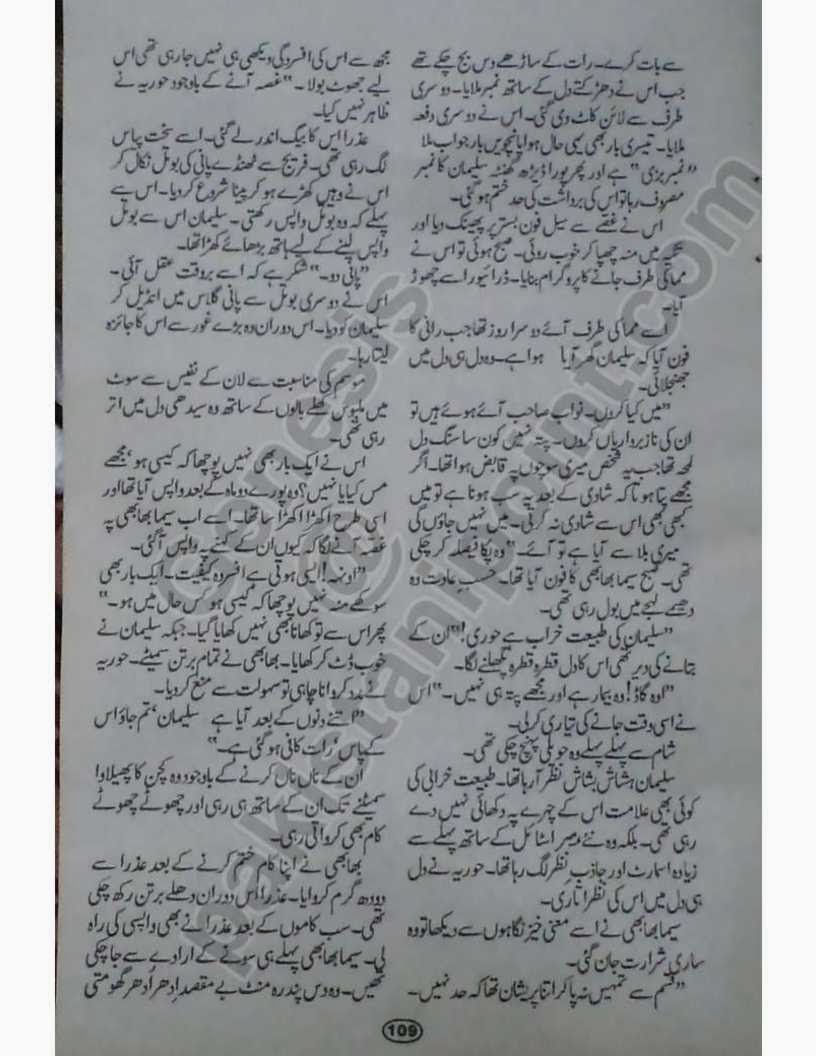 سے بات کرے۔ رات کے ساڑھے دس بج چکے تھے
جب اس نے دھڑکتے دل کے ساتھ نمبر ملایا۔ دوسری
طرف سے لائن کاٹ دی گئی۔ اس نے دوسری دفعہ
ملایا۔ تیسری بار بھی یہی حال ہوا پانچویں بار جواب ملا
"نمبر بزی" ہے اور پھر پورا ڈیڑھ گھنٹہ سلیمان کا نمبر
مصروف رہا تو اس کی برداشت کی حد ختم ہو گئی۔
اس نے غصے سے سیل فون بستر پر پھینک دیا اور
تکیہ میں منہ چھپا کر خوب روئی۔ صبح ہوئی تو اس نے
مما کی طرف جانے کا پروگرام بنایا۔ ڈرائیور اسے چھوڑ
آیا۔
اسے مما کی طرف آئے دوسرا روز تھا جب رانی کا
فون آیا کہ سلیمان گھر آیا ہوا ہے۔ وہ دل ہی دل میں
جھنجلائی۔
"میں کیا کروں۔ نواب صاحب آئے ہوئے ہیں تو
ان کی ناز برداریاں کروں۔ پتہ نہیں کون سا سنگ دل
لمحہ تھا جب یہ شخص میری سوچوں پہ قابض ہوا تھا۔ اگر
مجھے پتا ہوتا کہ شادی کے بعد یہ سب ہونا ہے تو میں
کبھی بھی اس سے شادی نہ کرتی۔ میں نہیں جاؤں گی
میری بلا سے آیا ہے تو آئے۔" وہ پکا فیصلہ کر چکی
تھی۔ صبح سیما بھابھی کا فون آیا تھا۔ حسب عادت وہ
دھیمے لہجے میں بول رہی تھی۔
"سلیمان کی طبیعت خراب ہے حوری!" ان کے
بتانے کی دیر تھی اس کا دل قطرہ قطرہ پگھلنے لگا۔
"اوہ گاڈ! وہ بیمار ہے اور مجھے پتہ ہی نہیں۔" اس
نے اسی وقت جانے کی تیاری کر لی۔
شام سے پہلے پہلے وہ حویلی پہنچ چکی تھی۔
سلیمان ہشاش بشاش نظر آ رہا تھا۔ طبیعت خرابی کی
کوئی بھی علامت اس کے چہرے پہ دکھائی نہیں دے
رہی تھی۔ بلکہ وہ نئے ہیر اسٹائل کے ساتھ پہلے سے
زیادہ اسمارٹ اور جاذب نظر لگ رہا تھا۔ حوریہ نے دل
ہی دل میں اس کی نظر اتاری۔
سیما بھابھی نے اسے معنی خیز نگاہوں سے دیکھا تو وہ
ساری شرارت جان گئی۔
"قسم سے تمہیں نہ پا کر اتنا پریشان تھا کہ حد نہیں۔
مجھ سے اس کی افسردگی دیکھی ہی نہیں جا رہی تھی اس
لیے جھوٹ بولا۔" غصہ آنے کے باوجود حوریہ نے
ظاہر نہیں کیا۔
عذرا اس کا بیگ اندر لے گئی۔ اسے سخت پیاس
لگ رہی تھی۔ فریج سے ٹھنڈے پانی کی بوتل نکال کر
اس نے وہیں کھڑے ہو کر پینا شروع کر دیا۔ اس سے
پہلے کہ وہ بوتل واپس رکھتی۔ سلیمان اس سے بوتل
واپس لینے کے لیے ہاتھ بڑھائے کھڑا تھا۔
"پانی دو۔" شکر ہے کہ اسے بروقت عقل آئی۔
اس نے دوسری بوتل سے پانی گلاس میں انڈیل کر
سلیمان کو دیا۔ اس دوران وہ بڑے غور سے اس کا جائزہ
لیتا رہا۔
موسم کی مناسبت سے لان کے نفیس سے سوٹ
میں ملبوس کھلے بالوں کے ساتھ وہ سیدھی دل میں اتر
رہی تھی۔
اس نے ایک بار بھی نہیں پوچھا کہ کیسی ہو، مجھے
مس کیا یا نہیں؟ وہ پورے دو ماہ کے بعد واپس آیا تھا اور
اسی طرح اکھڑا اکھڑا سا تھا۔ اسے اب سیما بھابھی پہ
غصہ آنے لگا کہ کیوں ان کے کہنے پہ واپس آ گئی۔
"اونہہ! ایسی ہوتی ہے افسردہ کیفیت۔ ایک بار بھی
سوکھے منہ نہیں پوچھا کہ کیسی ہو کس حال میں ہو۔"
پھر اس سے تو کھانا بھی نہیں کھایا گیا۔ جبکہ سلیمان نے
خوب ڈٹ کر کھایا۔ بھابھی نے تمام برتن سمیٹے۔ حوریہ
نے مدد کروانا چاہی تو سہولت سے منع کر دیا۔
"اتنے دنوں کے بعد آیا ہے سلیمان، تم جاؤ اس
کے پاس، رات کافی ہو گئی ہے۔"
ان کے ناں ناں کرنے کے باوجود وہ کچن کا پھیلاوا
سمیٹنے تک ان کے ساتھ ہی رہی اور چھوٹے چھوٹے
کام بھی کرواتی رہی۔
بھابھی نے اپنا کام ختم کرنے کے بعد عذرا سے
دودھ گرم کروایا۔ عذرا اس دوران دھلے برتن رکھ چکی
تھی۔ سب کاموں کے بعد عذرا نے بھی واپسی کی راہ
لی۔ سیما بھابھی پہلے ہی سونے کے ارادے سے جا چکی
تھیں۔ وہ دس پندرہ منٹ بے مقصد ادھر ادھر گھومتی
109
Genesis
@
pakistanipoint.com